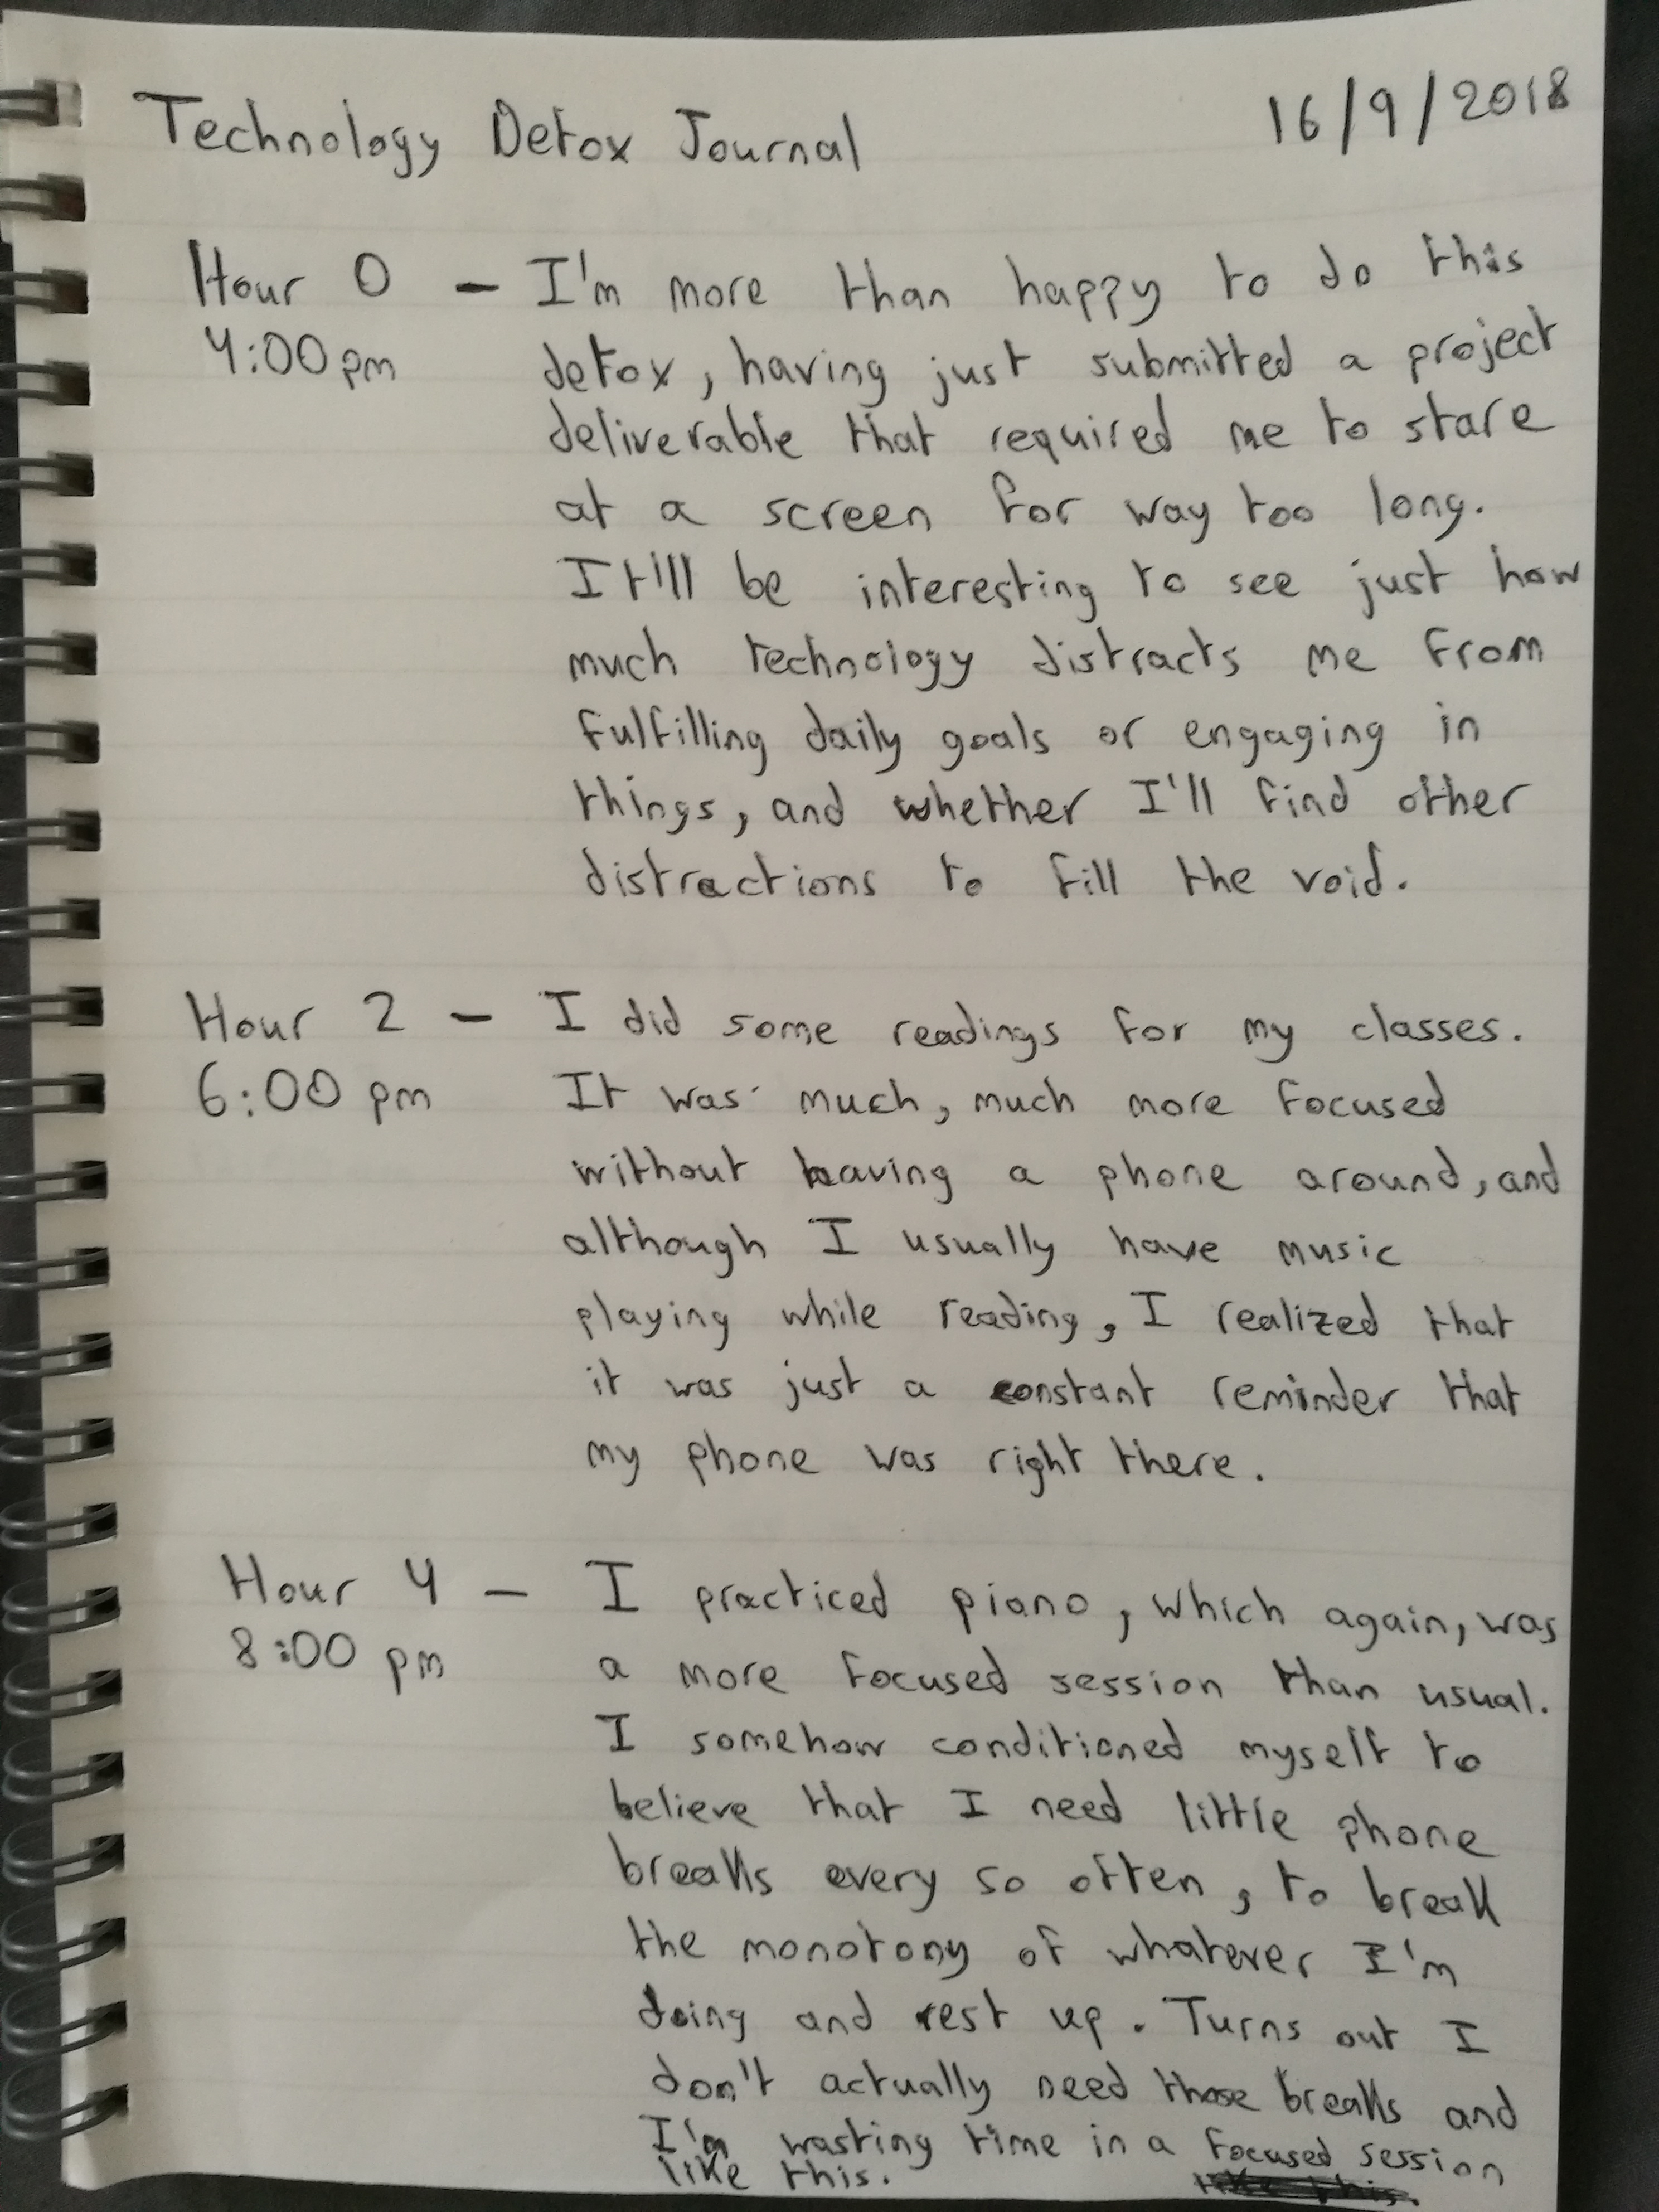 Technology Detox Journal 16/9/2018
Hour 0 – I'm more than happy to do this
4:00pm detox, having just submitted a project
deliverable that required me to stare
at a screen for way too long.
It'll be interesting to see just how
much technology distracts me from
fulfilling daily goals or engaging in
things, and whether I'll find other
distractions to fill the void.
Hour 2 – I did some readings for my classes.
6:00 pm It was much, much more focused
without having a phone around, and
although I usually have music
playing while reading, I realized that
it was just a constant reminder that
my phone was right there.
Hour 4 – I practiced piano, which again, was
8:00 pm a more focused session than usual.
I somehow conditioned myself to
believe that I need little phone
breaks every so often, to break
the monotony of whatever I'm
doing and rest up. Turns out I
don't actually need those breaks and
I'm wasting time in a focused session
like this. like this.